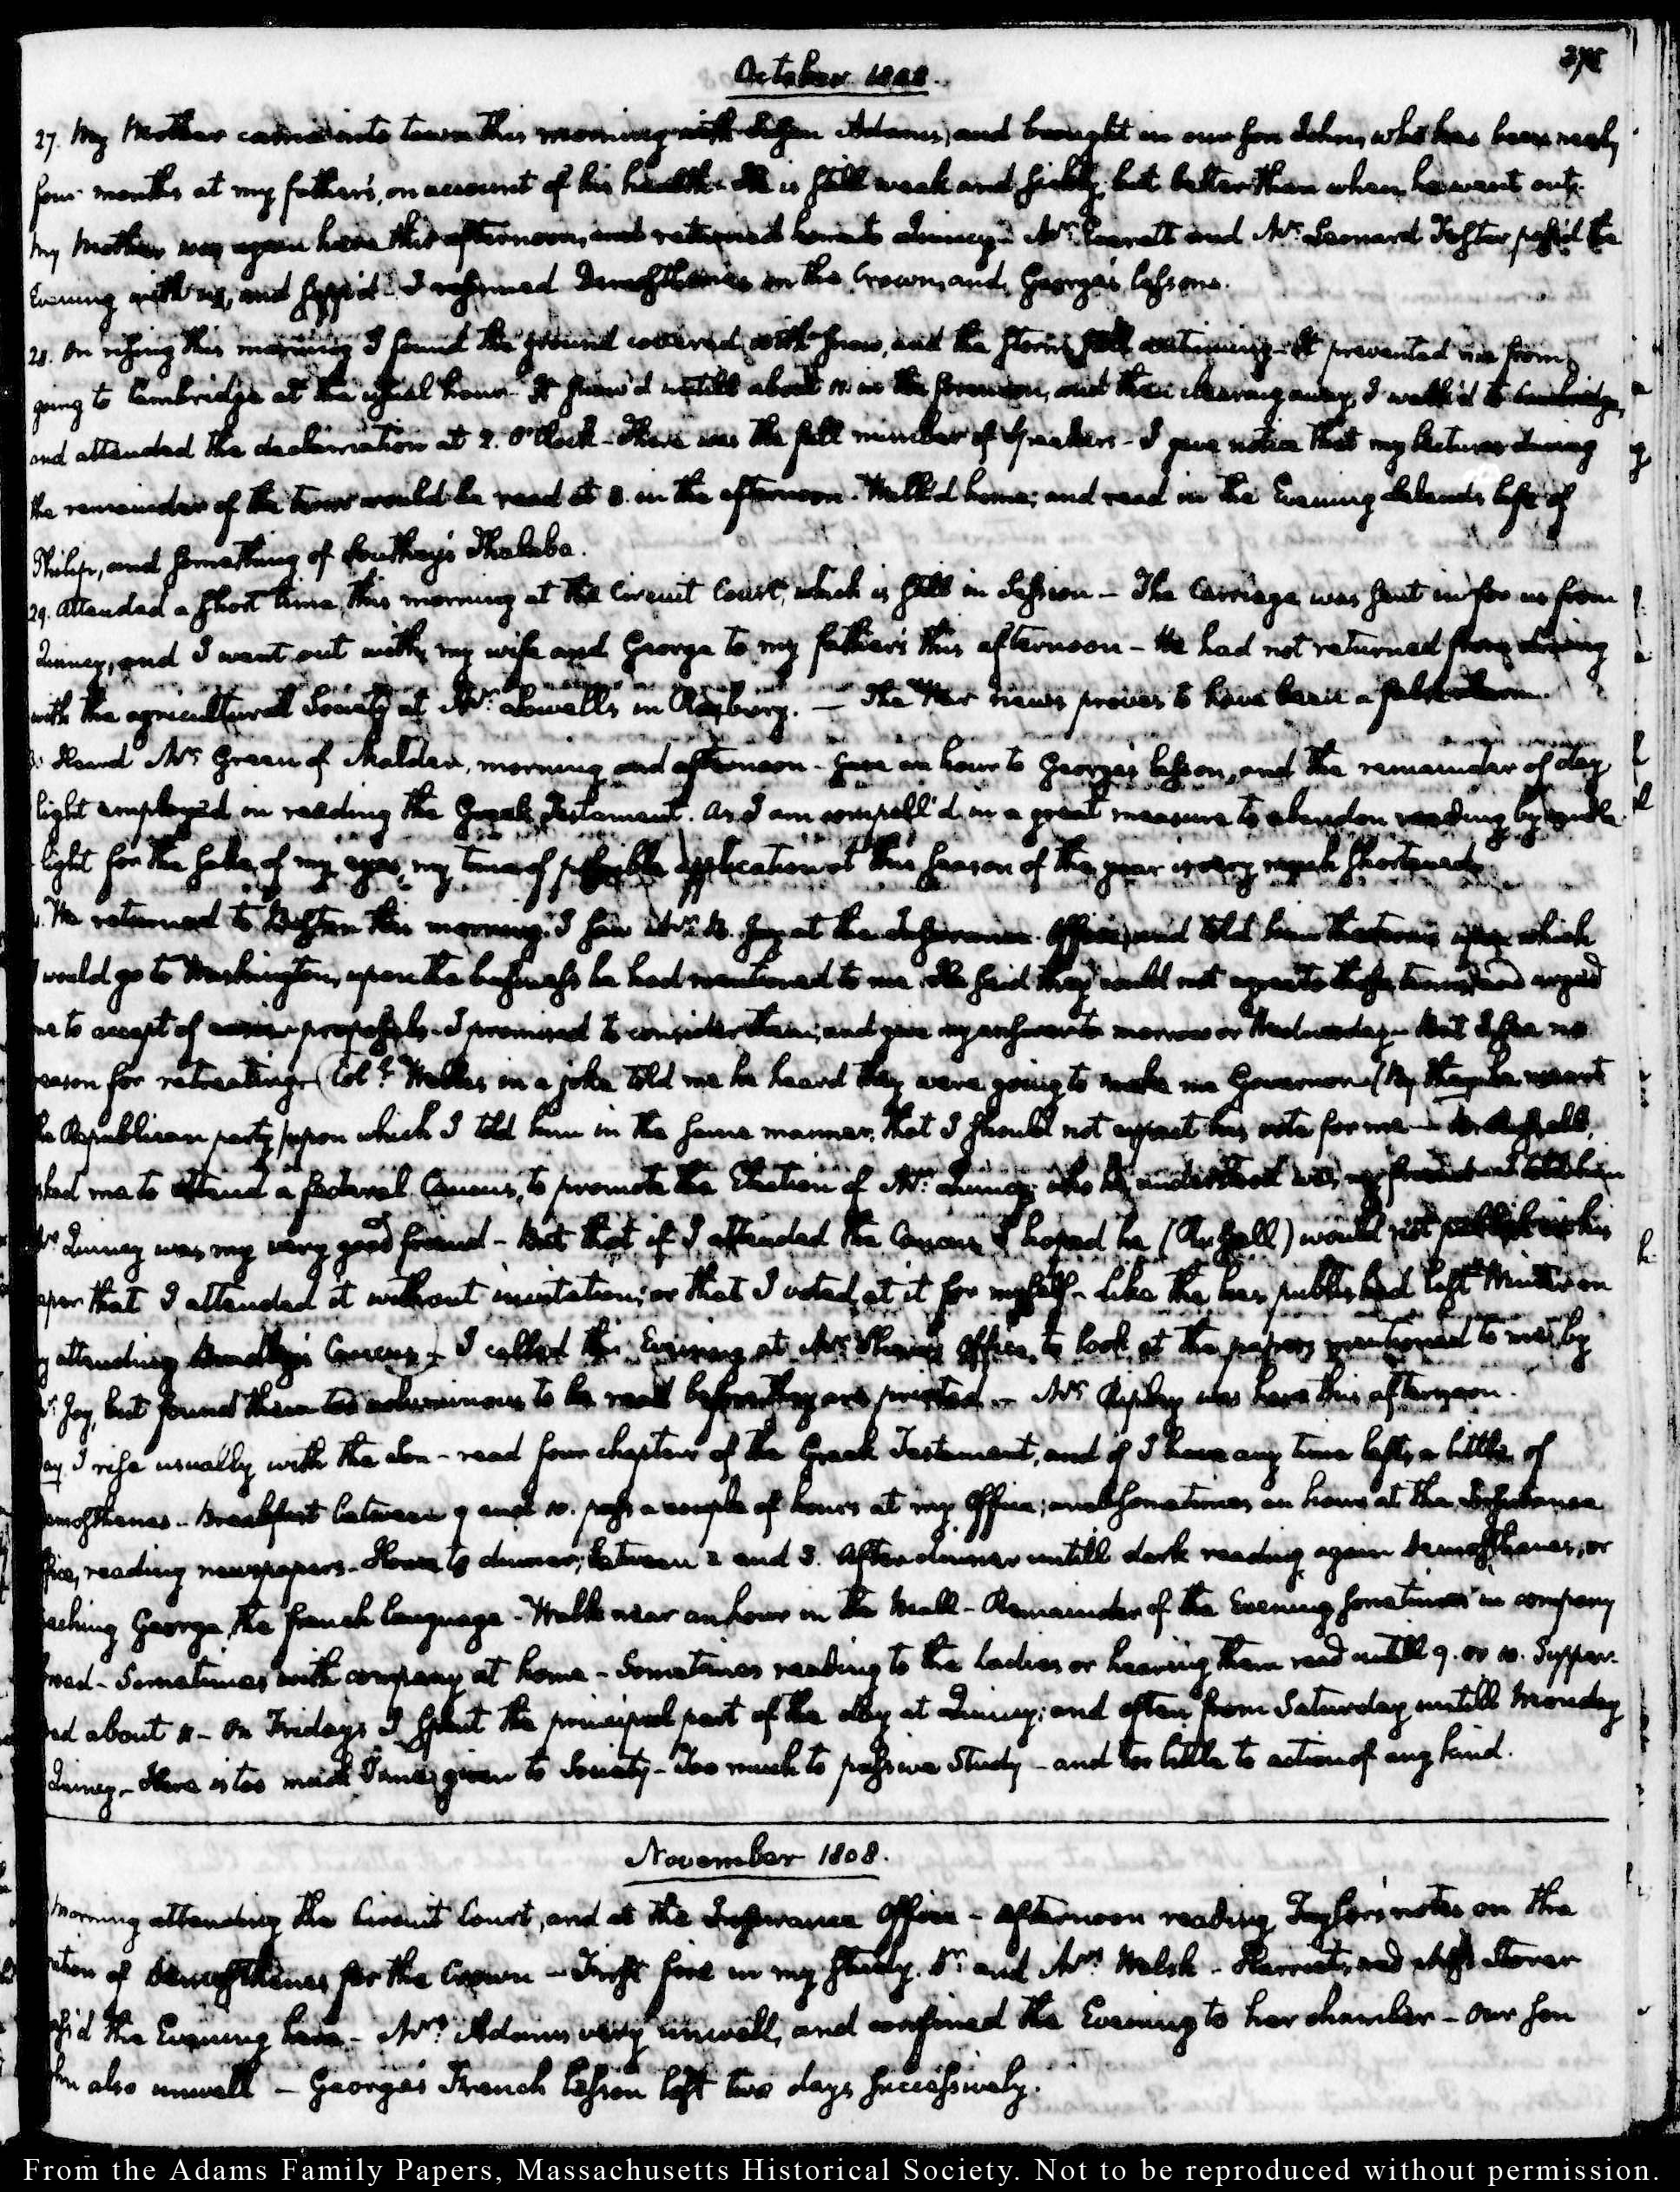 October 1808.
27. My Mother came into town this morning with Susan Adams, and brought in our Son John, who has been nearly
four months at my father's, on account of his health. He is still weak and sickly; but better than when he went out.
My Mother was again here this afternoon, and returned home to Quincy. Mr: Everett and Mr: Leonard Foster pass'd the
Evening with us, and supp'd. I resumed Demosthenes on the Crown, and George's lessons.
28. On rising this morning I found the ground covered with snow, and the storm still continuing. It prevented me from
going to Cambridge at the usual hour. It snow'd untill about 11. in the forenoon, and then clearing away, I walk'd to Cambridge,
and attended the declamation at 2. O'Clock. There was the full number of Speakers - I gave notice that my lectures during
the remainder of the term would be read at in the afternoon. Walk'd home; and read in the Evening Leland's life of
Philip, and something of Southey's Thalaba.
29. Attended a short time this morning at the Circuit Court, which is still in Session - The Carriage was sent in for us from
Quincy, and I went out with my wife and George to my father's this afternoon - He had not returned from dining
with the agricultural Society at Mr: Lowell's in Roxbury. — The War news proves to have been a false alarm.
Heard Mr: Green of Malden, morning and afternoon - Gave an hour to George's lesson, and the remainder of day
light employed in reading the Greek Testament. As I am compell'd in a great measure to abandon reading by candle
light for the sake of my eyes, my time of possible application at this season of the year is very much shortened.
We returned to Boston this morning. I saw Mr: B. Joy at the Insurance Office, and told him the terms upon which
I would go to Washington, upon the business he had mentioned to me. He said they could not agree to those terms, and urged
me to accept of proposals - I promised to consider them, and give my answer to morrow or Wednesday - But I see no
reason for retreating. Colo: Welles in a joke told me he heard they were going to make me Governor (By they he meant
the Republican party) upon which I told him in the same manner, that I should not expect his vote for me - Mr. Russell,
asked me to attend a federal Caucus, to promote the Election of Mr: Quincy, who he understood was my friend - I told him
Mr Quincy was my very good friend - But that if I attended the Caucus I hoped he (Russell) would not publish in his
paper that I attended it without invitation; or that I voted at it for myself - Like the lies published last Winter on
my attending Bradley's Caucus - I called this Evening at Mr: Office, to look at the papers mentioned to me by
Mr: Joy, but found them too voluminous to be read before they are printed. - Mr: Ripley was here this afternoon.
Day. I rise usually with the Sun - read four chapters of the Greek Testament, and if I have any time left, a little of
Demosthenes. Breakfast between 9 and 10. pass a couple of hours at my Office; and sometimes an hour at the Insurance
Office, reading newspapers - Home to dinner, between 2 and 3. After dinner untill dark reading again Demosthenes, or
teaching George the french language - Walk near an hour in the Mall - Remainder of the Evening sometimes in company
abroad - Sometimes with company at home - Sometimes reading to the Ladies or hearing them read untill 9. or 10. Supper.
Bed about 11 - On Fridays I spent the principal part of the day at Quincy; and often from Saturday untill Monday
Quincy - Here is too much Time given to Society - Too much to passive Study - and too little to action of any kind.
November 1808.
Morning attending the Circuit Court, and at the Insurance Office - afternoon reading Taylor's notes on the
Oration of Demosthenes for the Crown - First fire in my study. Dr: and Mrs: Welsh - Harriet, and Miss Storer
pass'd the Evening here - Mrs: Adams very unwell, and confined the Evening to her chamber - Our Son
John also unwell - George's French lesson lost two days successively.
From the Adams Family Papers, Massachusetts Historical Society. Not to be reproduced without permission.